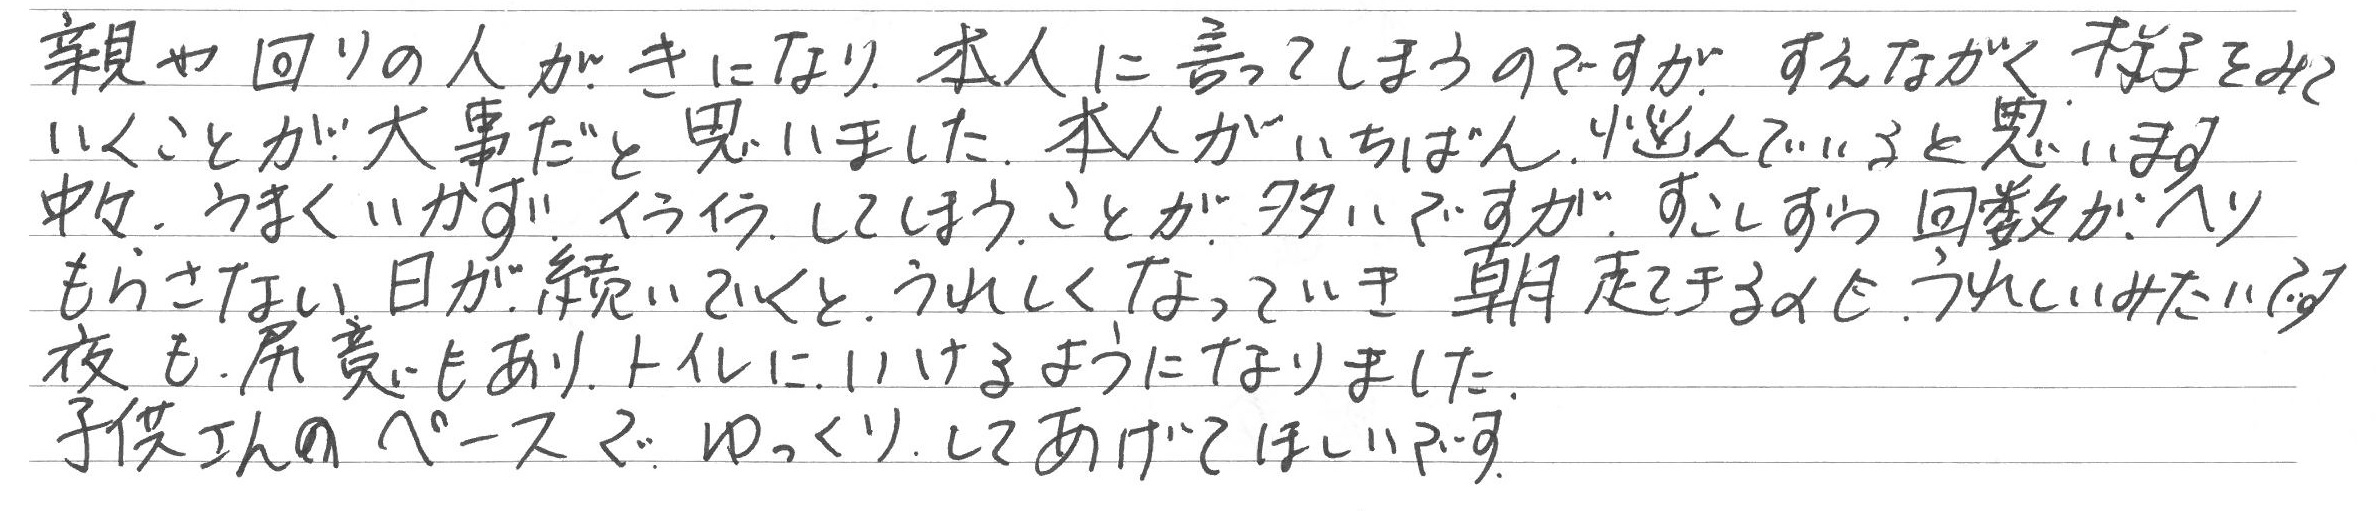 親や回りの人が、きになり、本人に言ってしまうのですが、すえながく、様子をみて
いくことが、大事だと思いました。本人がいちばん、悩んでいると思います
中々、うまくいかず、イライラ、してしまう、ことが、多いですが、すこしずつ回数が、へり
もらさない、日が、続いていくと、うれしくなっていき 朝起きてきるのも、うれしいみたいです
夜も、尿意もあり、トイレに、いけるようになりました。
子供さんのペースで、ゆっくり、してあげてほしいです。